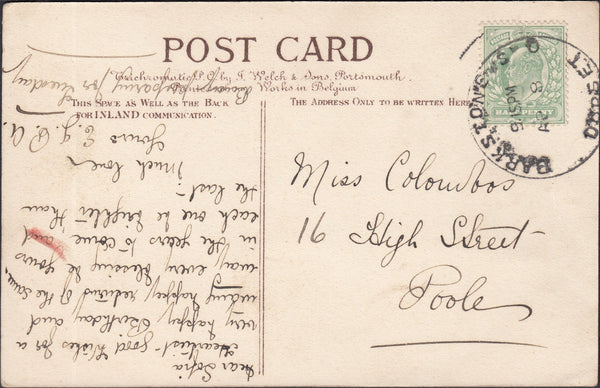 POST CARD
Trichromatic P.C. by J. Welch & Sons, Portsmouth.
Works in Belgium
THIS SPACE AS WELL AS THE BACK
FOR INLAND COMMUNICATION.
THE ADDRESS ONLY TO BE WRITTEN HERE
HALFPENNY
PARKSTONE
DORSET
Miss Colombos
16 High Street
Poole
Dear Sofia
Heartiest good wishes for a
very happy Birthday and
many happy returns of the same.
may every blessing be yours
in the years to come and
each one be brighter than
the last.
Much love
Yours E. J.
for Tuesday